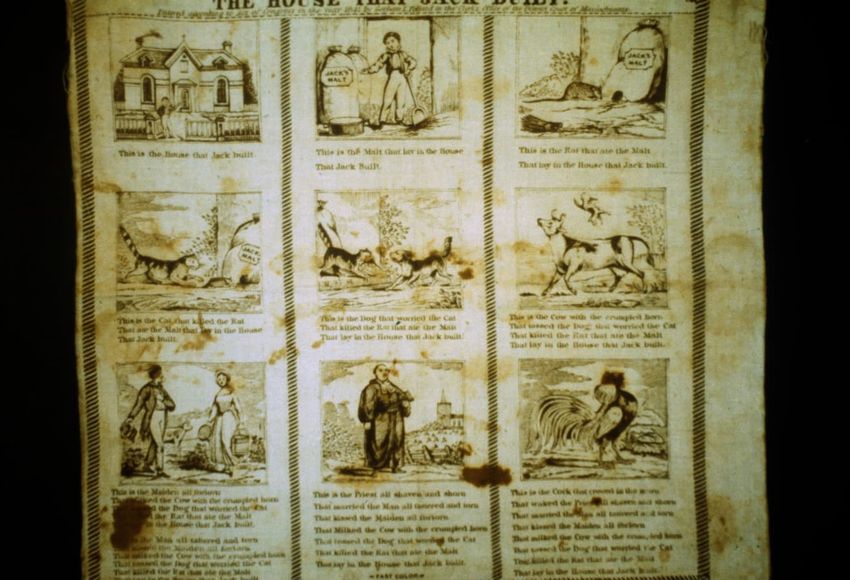 THE HOUSE THAT JACK BUILT.
Entered according to Act of Congress in the Year by in the Clerk's Office of the District Court of Massachusetts
JACK'S MALT
JACK'S MALT
This is the House that Jack built.
This is the Malt that lay in the House
That Jack Built.
This is the Rat that ate the Malt
That lay in the House that Jack built.
JACK'S MALT
This is the Cat that killed the Rat
That ate the Malt that lay in the House
That Jack built.
This is the Dog that worried the Cat
That killed the Rat that ate the Malt
That lay in the House that Jack built.
This is the Cow with the crumpled horn
That tossed the Dog that worried the Cat
That killed the Rat that ate the Malt
That lay in the House that Jack built.
This is the Maiden all forlorn
That Milked the Cow with the crumpled horn
the Dog that worried the Cat
the Rat that ate the Malt
in the House that Jack built.
is the Man all tattered and torn
the Maiden all forlorn
That milked the Cow with the crumpled horn
That tossed the Dog that worried the Cat
That killed the Rat that ate the Malt
This is the Priest all shaven and shorn
That married the Man all tattered and torn
That kissed the Maiden all forlorn
That Milked the Cow with the crumpled horn
That tossed the Dog that worried the Cat
That killed the Rat that ate the Malt
That lay in the House that Jack built.
FAST COLOR
This is the Cock that crowed in the morn
That waked the Priest all shaven and shorn
That married the Man all tattered and torn
That kissed the Maiden all forlorn
That Milked the Cow with the crumpled horn
That tossed the Dog that worried the Cat
That killed the Rat that ate the Malt
That lay in the House that Jack built.